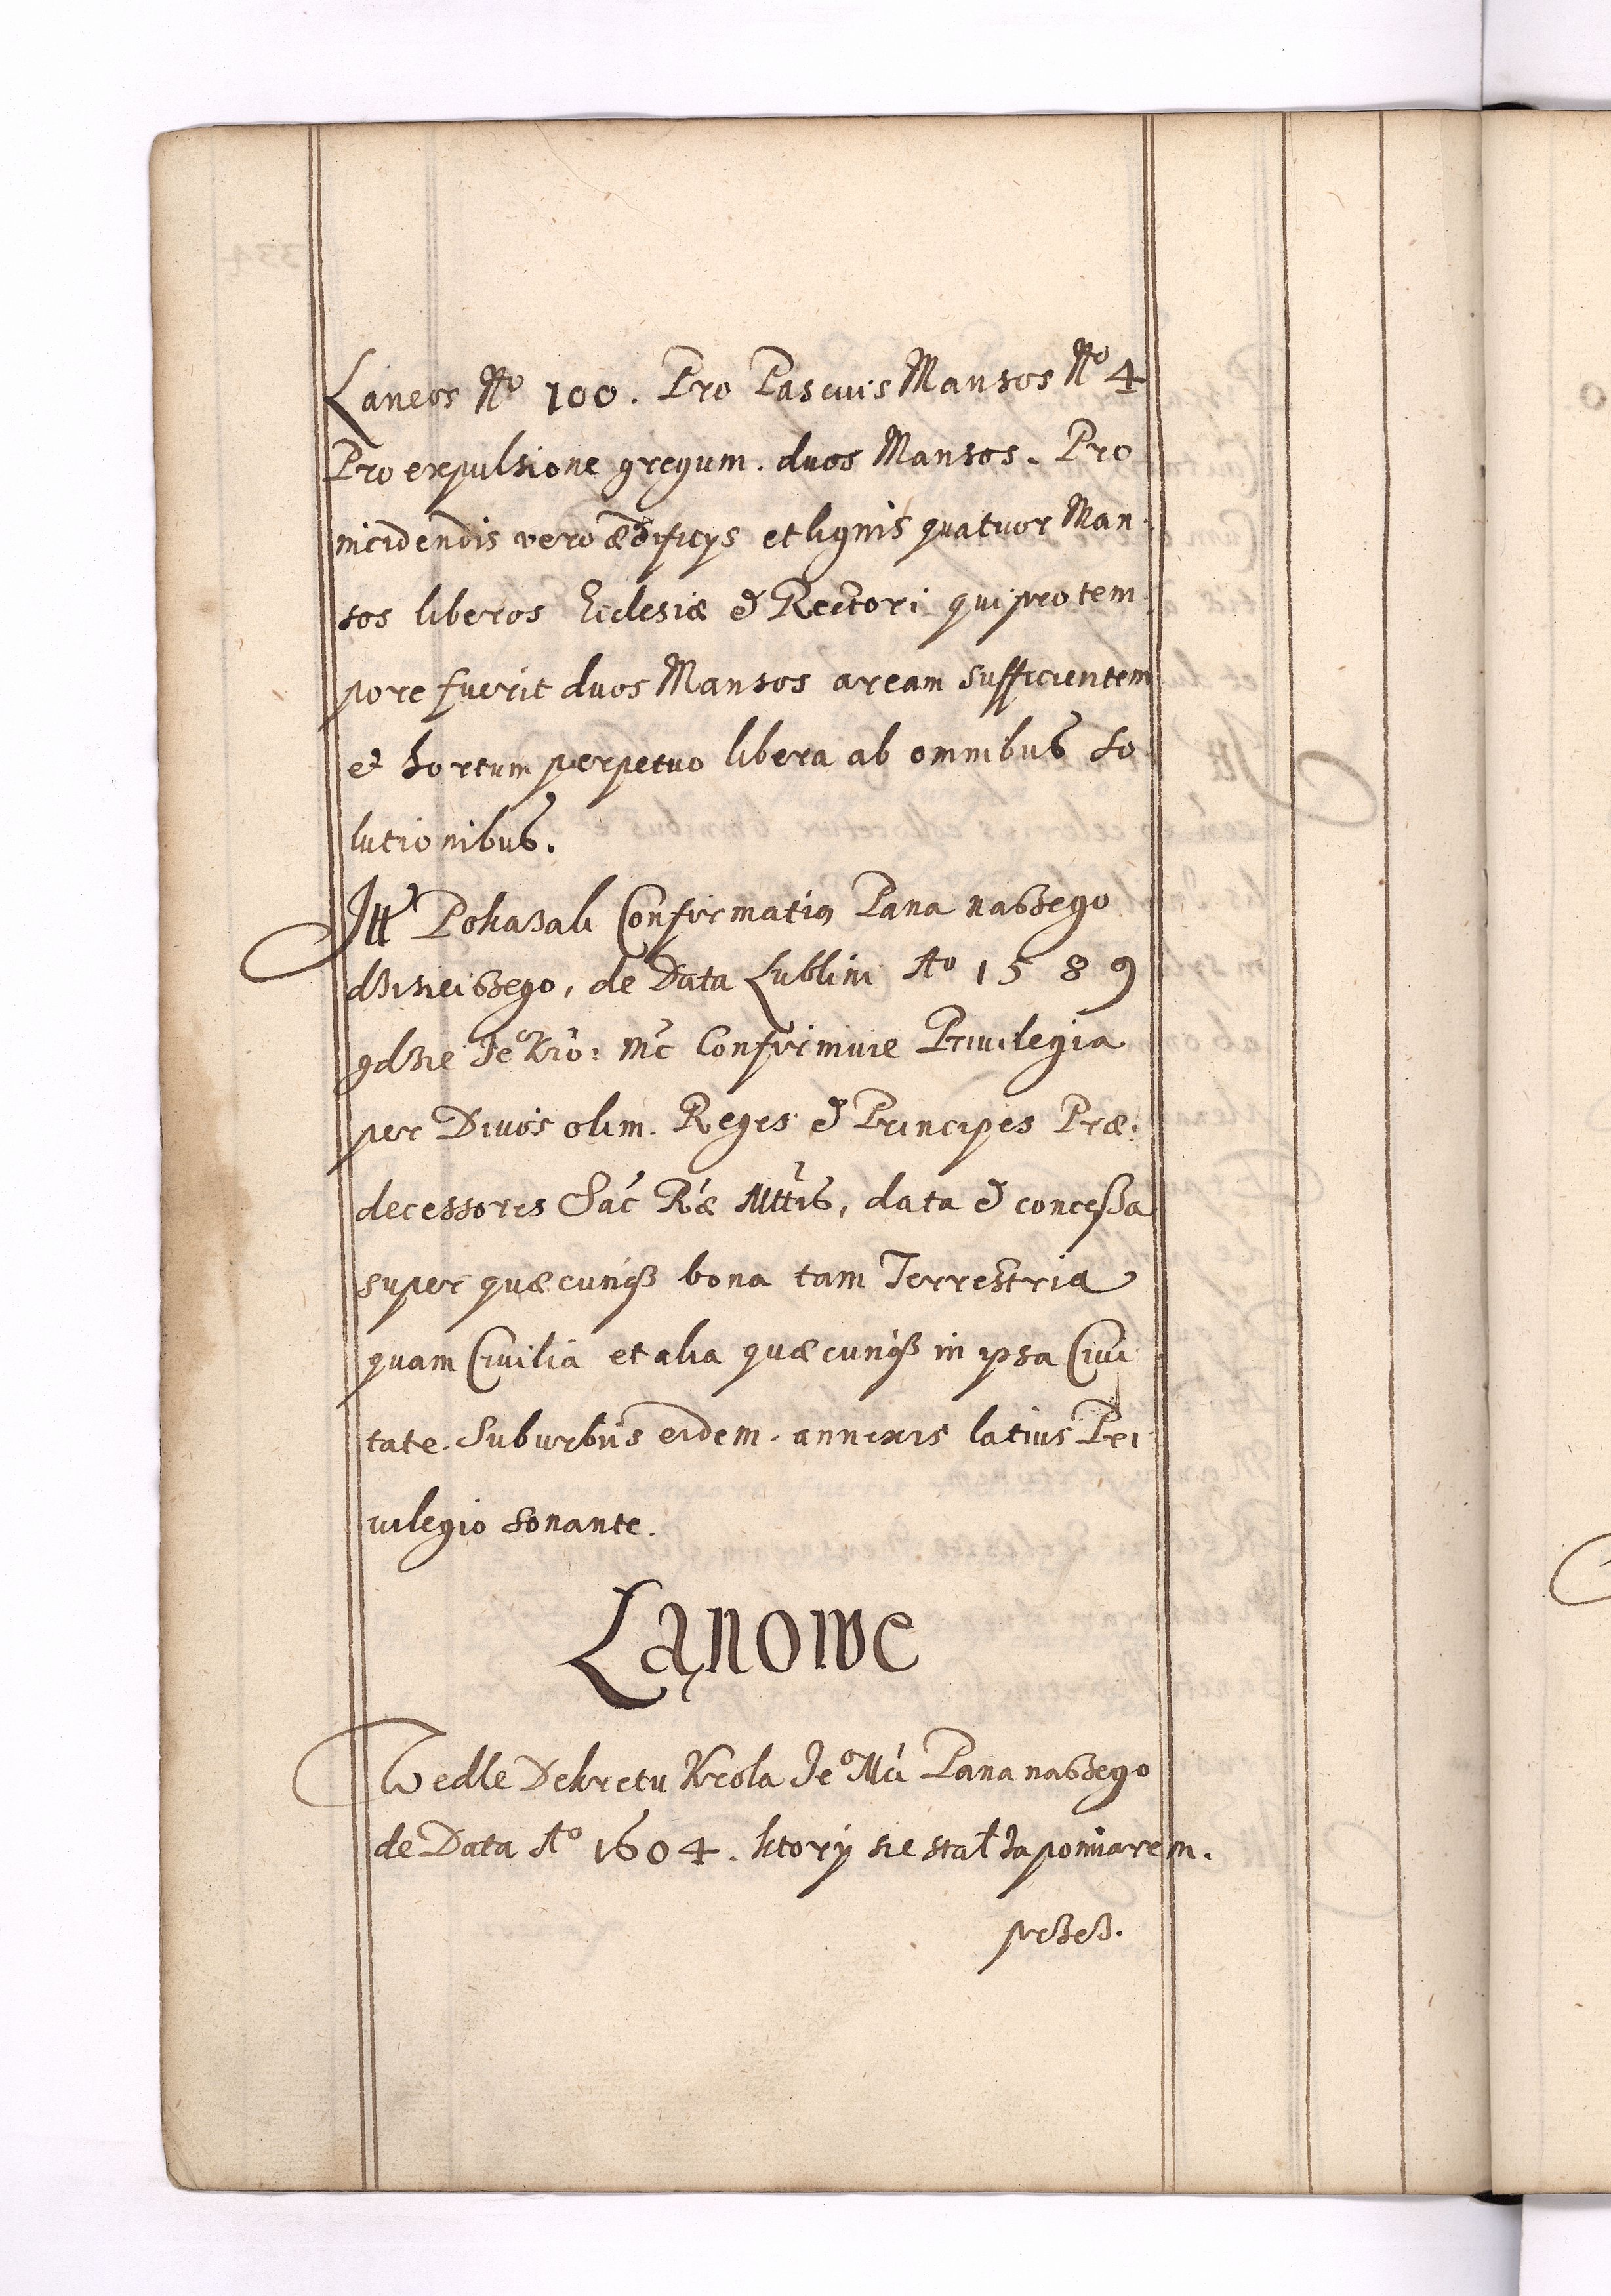 Laneos No 100. Pro Pascuis Mansos No 4
Pro expulsione gregum. duos Mansos. Pro
incidendis vero ædificys et lignis quatuor Man
sos liberos Ecclesiæ & Rectori qui pro tem
pore fuerit duos Mansos aream sufficientem
et hortum perpetuo libera ab omnibus so
lutionibus.
Itt Pokazali Confirmatią Pana naszego
dzisieiszego, de Data Lublini Ao 1589
gdzie Jeo Kro: Mć Confirmuie Privilegia
per Divos olim. Reges & Principes Præ:
decessores Sac Ræ Mttis, data & concessa
super quæcunqz bona tam Terrestria
quam Civilia et alia quæcunqz in ipsa Civi
tate. Suburbiis eidem. annexis latius Pri
vilegio sonante.
Łanowe
Wedle Dekretu Krola Jeo Mci Pana naszego
de Data Ao 1604. ktory sie stał za pomiarem.
przez.